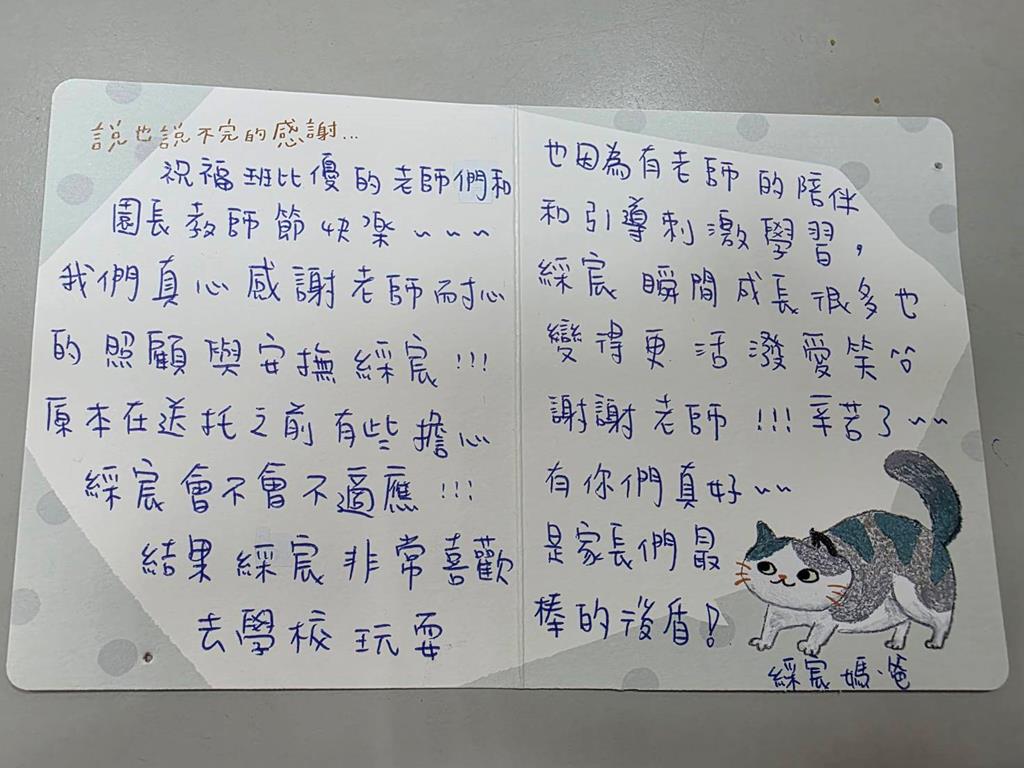 說也說不完的感謝...
祝福班比優的老師們和
園長教師節快樂~~~
我們真心感謝老師耐心
的照顧與安撫綵宸!!!
原本在送托之前有些擔心
綵宸會不會不適應!!!
結果綵宸非常喜歡
去學校玩耍
也因為有老師的陪伴
和引導刺激學習,
綵宸瞬間成長很多也
變得更活潑愛笑^^
謝謝老師!!!辛苦了~~
有你們真好~~
是家長們最
棒的後盾!
綵宸媽.爸